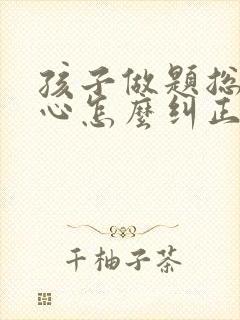 孩子做題总
心怎麼纠正
千柚子茶